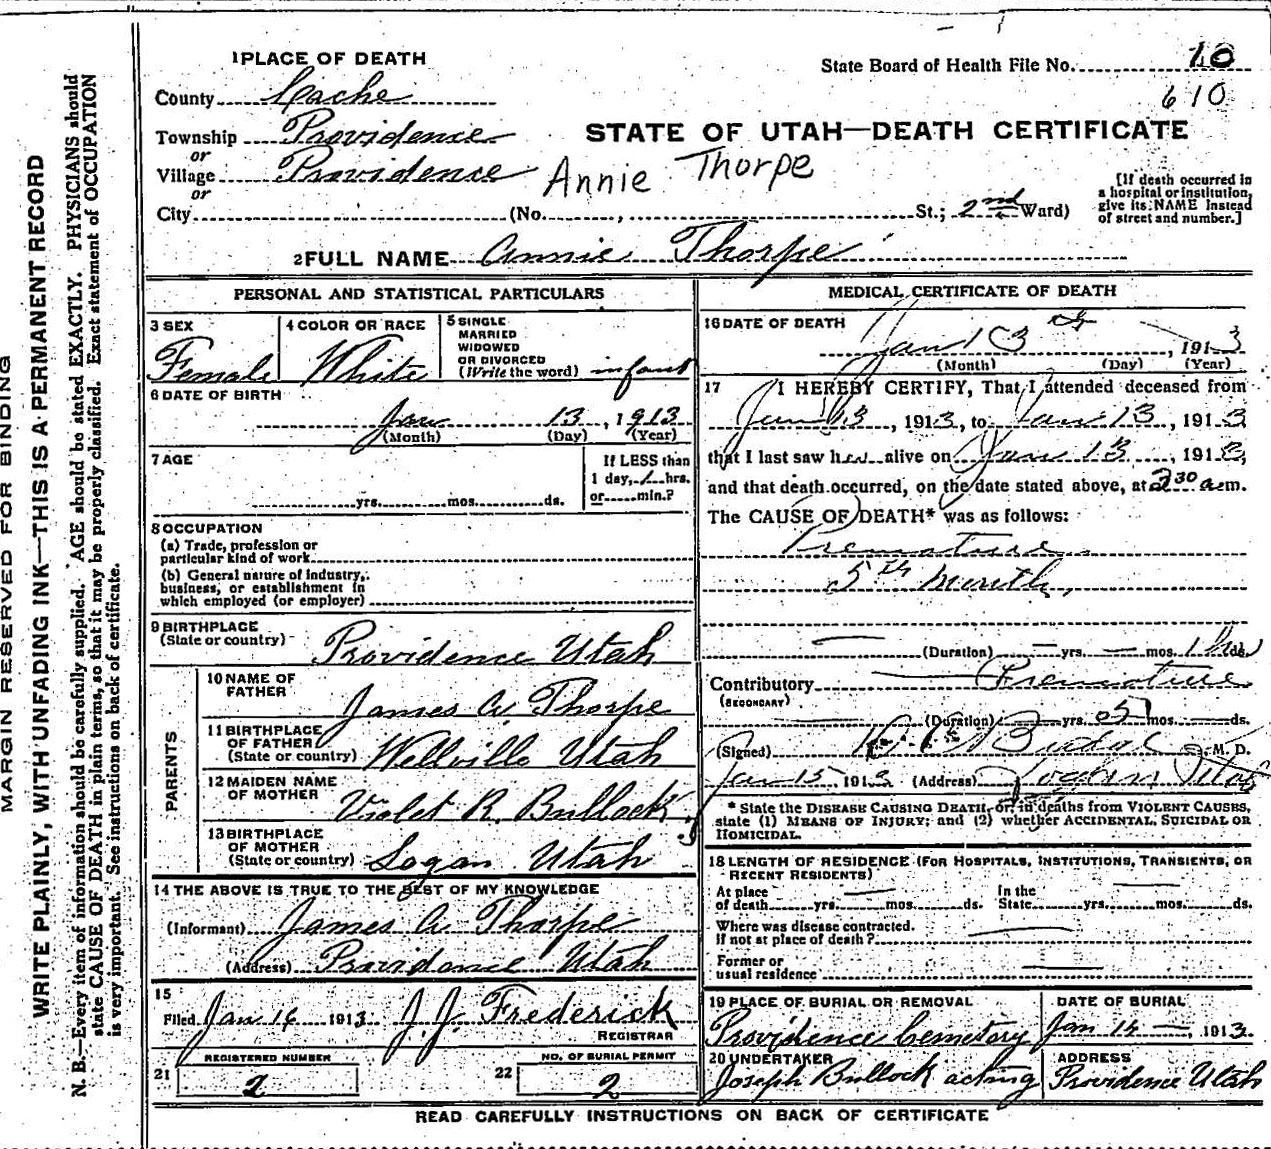 1 PLACE OF DEATH
State Board of Health File No. 10
610
County Cache
Township Providence
or
Village Providence
or
City (No. , St.; 2nd Ward)
STATE OF UTAH—DEATH CERTIFICATE
Annie Thorpe
[If death occurred in
a hospital or institution,
give its NAME instead
of street and number.]
2 FULL NAME Annie Thorpe
PERSONAL AND STATISTICAL PARTICULARS
3 SEX
Female
4 COLOR OR RACE
White
5 SINGLE
MARRIED
WIDOWED
OR DIVORCED
(Write the word) infant
6 DATE OF BIRTH
Jan 13, 1913
(Month) (Day) (Year)
7 AGE
yrs. mos. ds.
If LESS than
1 day, 1 hrs.
or min.?
8 OCCUPATION
(a) Trade, profession or
particular kind of work
(b) General nature of industry,
business, or establishment in
which employed (or employer)
9 BIRTHPLACE
(State or country) Providence Utah
PARENTS
10 NAME OF
FATHER
James A. Thorpe
11 BIRTHPLACE
OF FATHER
(State or country) Wellville Utah
12 MAIDEN NAME
OF MOTHER Violet R. Bullock
13 BIRTHPLACE
OF MOTHER
(State or country) Logan Utah
14 THE ABOVE IS TRUE TO THE BEST OF MY KNOWLEDGE
(Informant) James A. Thorpe
(Address) Providence Utah
15
Filed Jan 14 1913 J. J. Frederick
REGISTRAR
REGISTERED NUMBER
21 2
NO. OF BURIAL PERMIT
22 2
MEDICAL CERTIFICATE OF DEATH
16 DATE OF DEATH
Jan 13th, 1913
(Month) (Day) (Year)
17 I HEREBY CERTIFY, That I attended deceased from
Jan 13, 1913, to Jan 13, 1913
that I last saw her alive on Jan 13, 1913,
and that death occurred, on the date stated above, at 2 30 a.m.
The CAUSE OF DEATH* was as follows:
Premature
5th Month,
(Duration) — yrs. — mos. 1 hr ds.
Contributory Premature
(SECONDARY)
(Duration) yrs. 5 mos. ds.
(Signed) M. D.
Jan 15, 1913 (Address) Logan Utah
* State the DISEASE CAUSING DEATH, or, in deaths from VIOLENT CAUSES,
state (1) MEANS OF INJURY; and (2) whether ACCIDENTAL, SUICIDAL OR
HOMICIDAL.
18 LENGTH OF RESIDENCE (FOR HOSPITALS, INSTITUTIONS, TRANSIENTS, OR
RECENT RESIDENTS)
At place
of death yrs. mos. ds.
In the
State yrs. mos. ds.
Where was disease contracted.
If not at place of death?
Former or
usual residence
19 PLACE OF BURIAL OR REMOVAL
Providence Cemetery
DATE OF BURIAL
Jan 14 — 1913.
20 UNDERTAKER
Joseph Bullock acting
ADDRESS
Providence Utah
READ CAREFULLY INSTRUCTIONS ON BACK OF CERTIFICATE
MARGIN RESERVED FOR BINDING
WRITE PLAINLY, WITH UNFADING INK—THIS IS A PERMANENT RECORD
N. B.—Every item of information should be carefully supplied. AGE should be stated EXACTLY. PHYSICIANS should
state CAUSE OF DEATH in plain terms, so that it may be properly classified. Exact statement of OCCUPATION
is very important. See instructions on back of certificate.